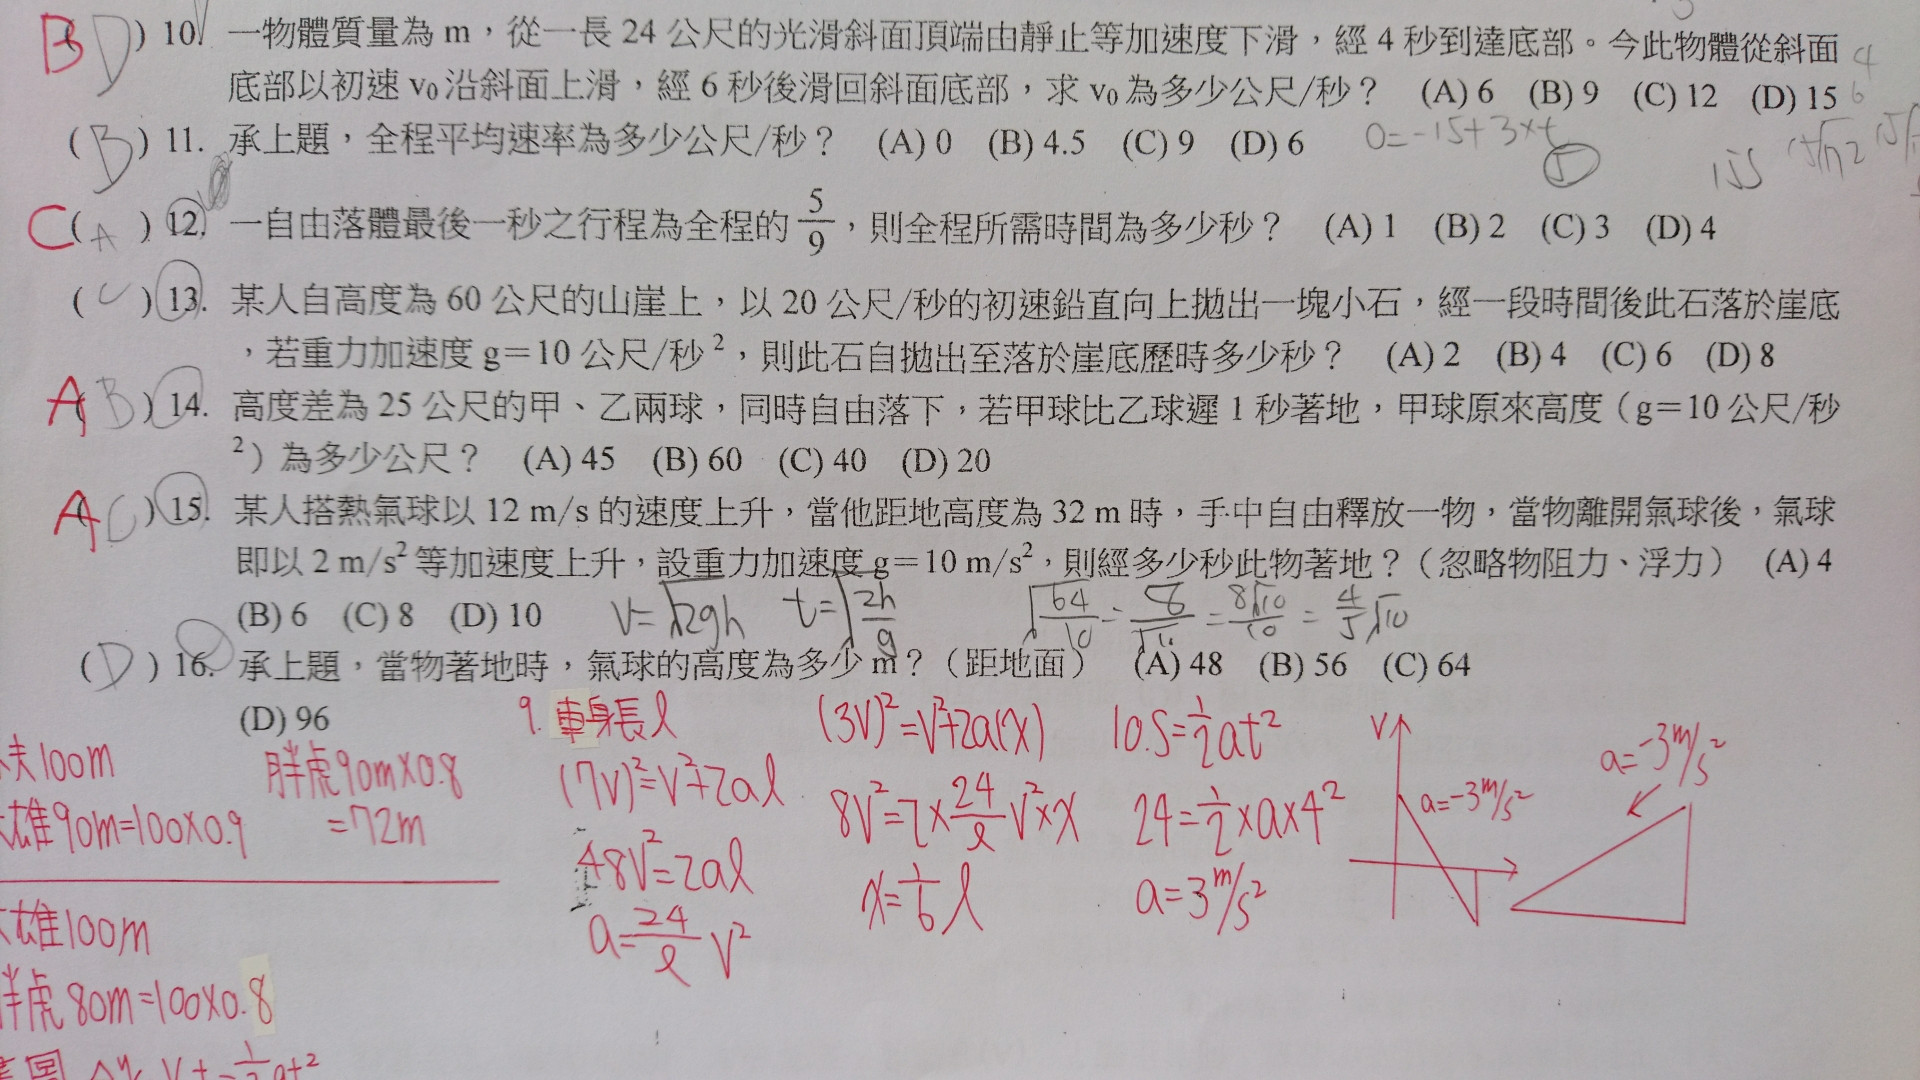 B(D) 10. 一物體質量為 m，從一長 24 公尺的光滑斜面頂端由靜止等加速度下滑，經 4 秒到達底部。今此物體從斜面
底部以初速 v₀ 沿斜面上滑，經 6 秒後滑回斜面底部，求 v₀ 為多少公尺/秒？ (A) 6 (B) 9 (C) 12 (D) 15
4
6
(B) 11. 承上題，全程平均速率為多少公尺/秒？ (A) 0 (B) 4.5 (C) 9 (D) 6
0=-15+3×t
5
C(A) 12. 一自由落體最後一秒之行程為全程的 5/9，則全程所需時間為多少秒？ (A) 1 (B) 2 (C) 3 (D) 4
(C) 13. 某人自高度為 60 公尺的山崖上，以 20 公尺/秒的初速鉛直向上拋出一塊小石，經一段時間後此石落於崖底
，若重力加速度 g＝10 公尺/秒²，則此石自拋出至落於崖底歷時多少秒？ (A) 2 (B) 4 (C) 6 (D) 8
A(B) 14. 高度差為 25 公尺的甲、乙兩球，同時自由落下，若甲球比乙球遲 1 秒著地，甲球原來高度（g＝10 公尺/秒
²）為多少公尺？ (A) 45 (B) 60 (C) 40 (D) 20
A(C) 15. 某人搭熱氣球以 12 m/s 的速度上升，當他距地高度為 32 m 時，手中自由釋放一物，當物離開氣球後，氣球
即以 2 m/s² 等加速度上升，設重力加速度 g＝10 m/s²，則經多少秒此物著地？（忽略物阻力、浮力） (A) 4
(B) 6 (C) 8 (D) 10
V=√2gh t=√(2h/g) √(64/10)=8/√10=8√10/10=4/5√10
(D) 16. 承上題，當物著地時，氣球的高度為多少 m？（距地面） (A) 48 (B) 56 (C) 64
(D) 96
夫100m
雄90m=100×0.9
胖虎90m×0.8
=72m
雄100m
胖虎80m=100×0.8
9. 車身長ℓ
(7V)²=V²+2aℓ
48V²=2aℓ
a=24/ℓ V²
(3V)²=V²+2a(x)
8V²=2×24/ℓ V²×x
x=1/6 ℓ
10. S=1/2at²
24=1/2×a×4²
a=3m/s²
V
a=-3m/s²
a=-3m/s²